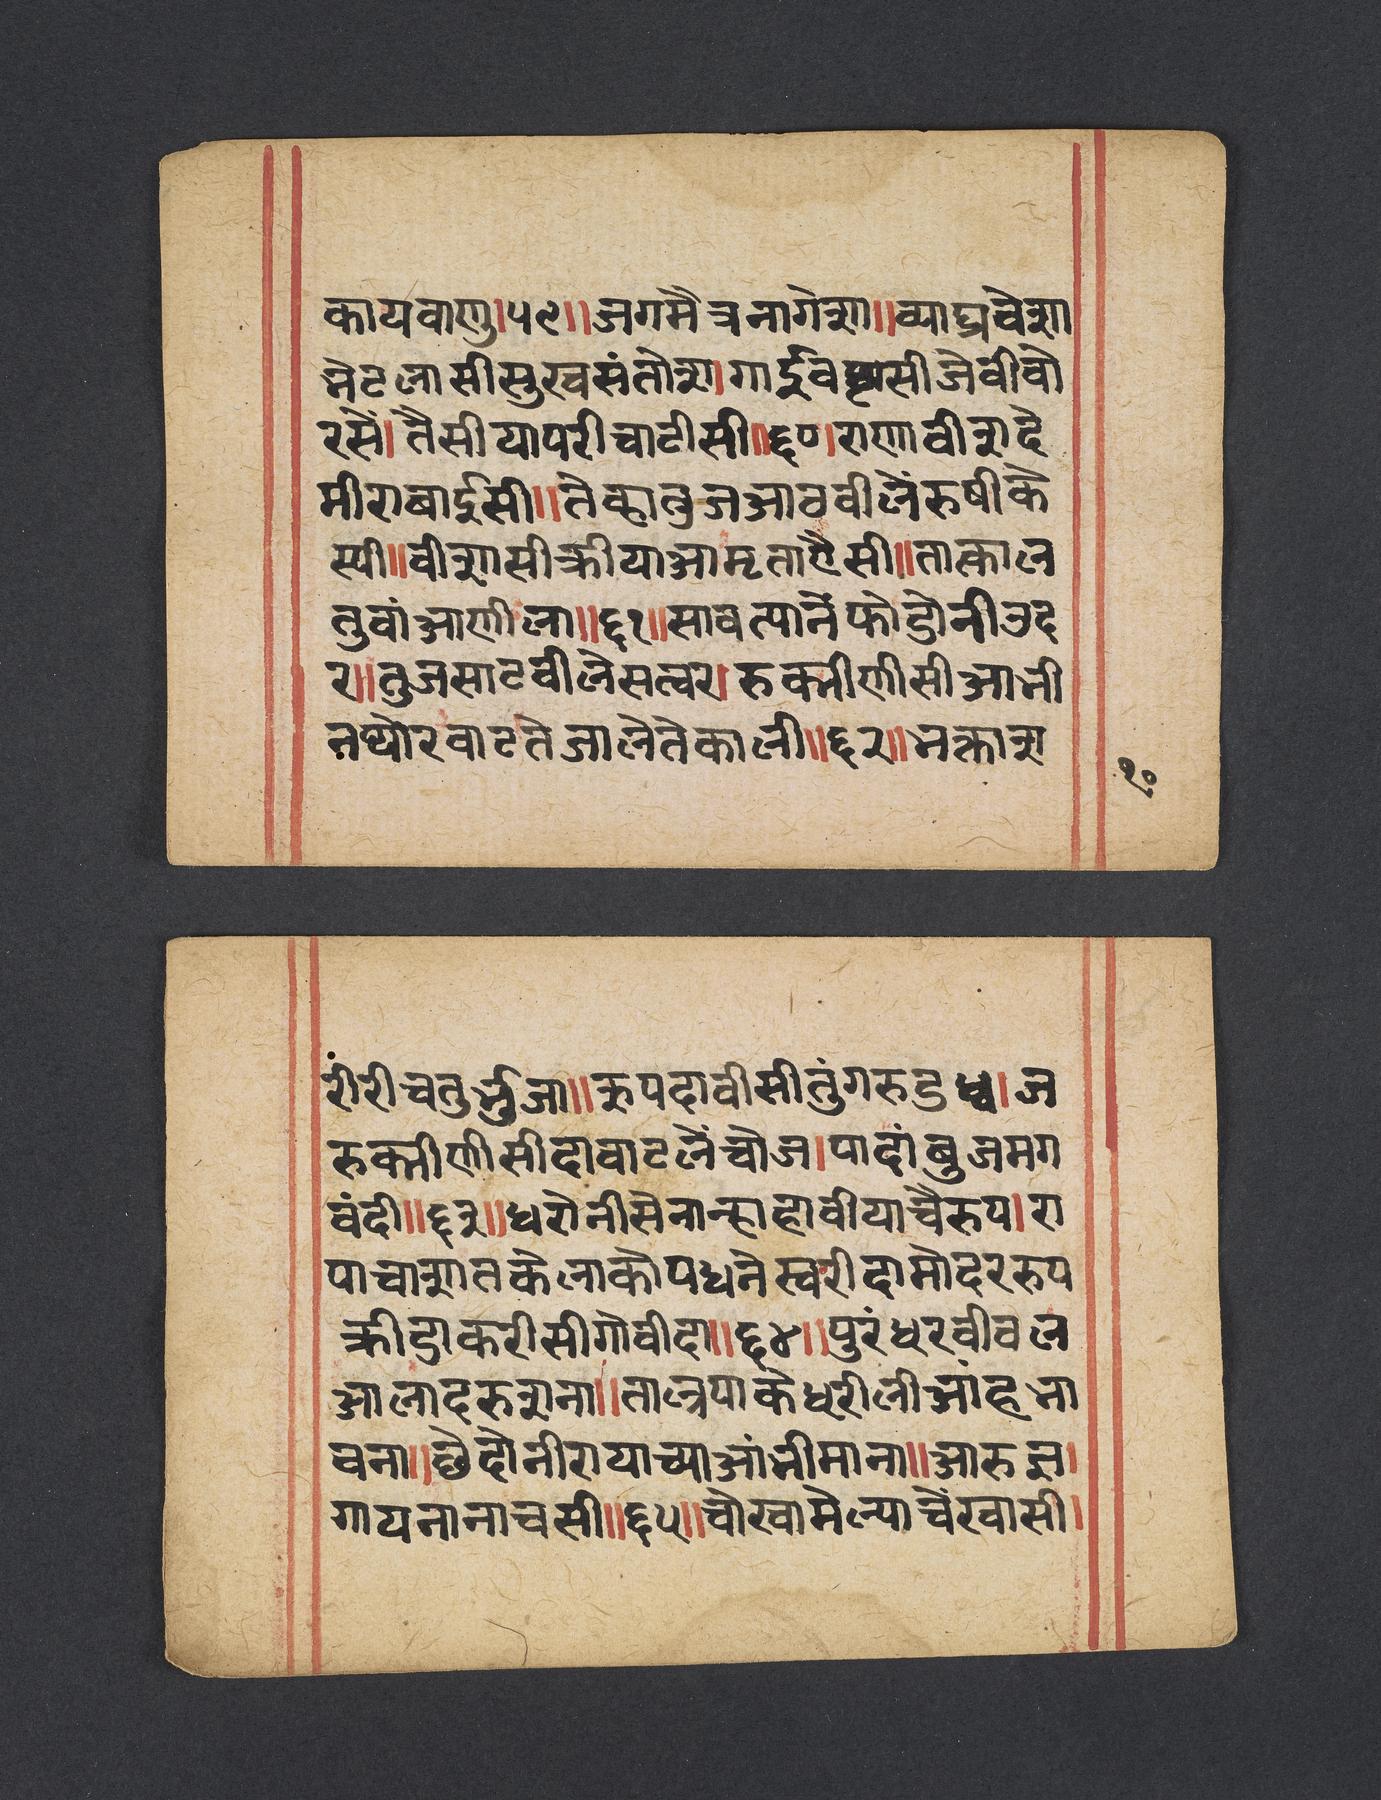 कायवाणु।५९॥जगमैत्रनागेशा॥व्याघ्रवेशा
नेटलासीसुखसंतोशा।गाईवप्नासीजैवीवो
रसें।तैसीयापरीचाटीसी॥६०।राणावीशदे
मीराबाईसी॥तेकातुजआठवीलेंरुषीके
स्यी॥वीशासीक्रीयाआमृताऐसी॥तात्काल
तुवांआणीला॥६१॥सावत्यानेंफोडोनीउद
र॥तुजसाटवीलेसत्वर।रुक्मीणीसीआली
नथोरवाटतेजालेतेकाली॥६२॥भक्ताश
१०
रींरीचतुर्भुजा॥रुपदावीसीतुंगरुडध्व।ज
रुक्मीणीसीदावाटलेंचोज।पादांबुजमग
वंदी॥६३॥धरोनीसेनान्हाहावीयाचेरुप।रा
पाचाशातकेलाकोपधनेस्वरीदामोदररुप
क्रीडाकरीसीगोवीदा॥६४॥पुरंधरवीवल
आलादरुशना॥तान्हपाकेधरीलीआंहभा
वना॥छेदोनीरायाच्याआंभीमाना॥आरुज।
गायनानाचसी॥६५॥चोखामेल्याचेंरवासी।